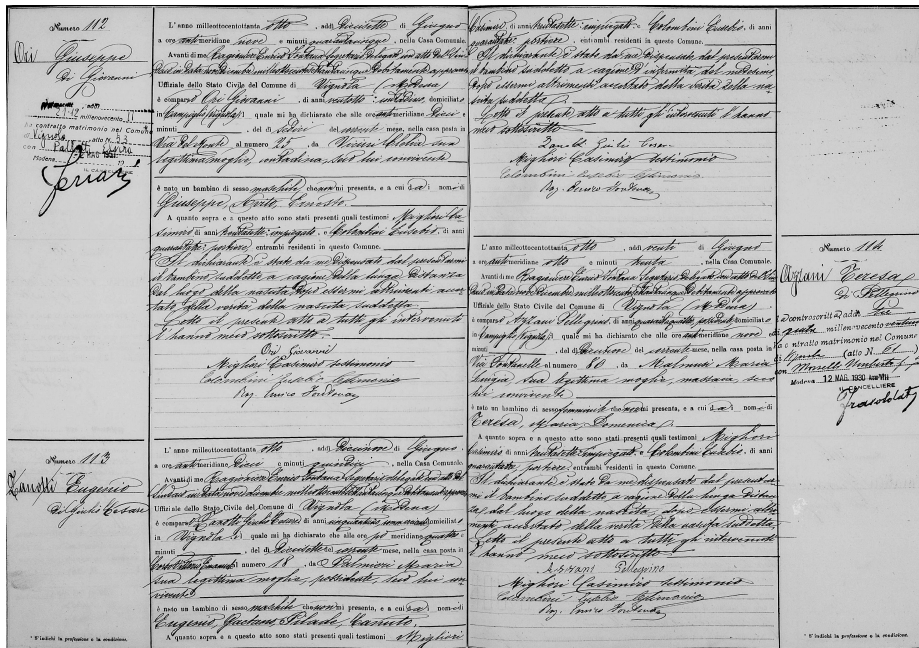 Numero 112
Ori Giuseppe
di Giovanni
ha contratto matrimonio nel Comune
di Vignola atto N. 33
con
Modena, MAG. 1931
IL CANCELLIERE
L'anno milleottocentottanta otto, addì Diciasette di Giugno
a ore antimeridiane nove e minuti quarantacinque, nella Casa Comunale.
Avanti di me Ragionier Enrico Fontana Segretario delegato
Uffiziale dello Stato Civile del Comune di Vignola (Modena)
è comparso Ori Giovanni, di anni ventotto, domiciliato
in Campiglio, il quale mi ha dichiarato che alle ore antimeridiane dieci e
minuti, del dì sedici del corrente mese, nella casa posta in
Via del Monte al numero 25, da Vincenzi Clelia sua
legittima moglie, contadina, seco lui convivente
è nato un bambino di sesso maschile che non mi presenta, e a cui dà i nomi di
Giuseppe, Ernesto.
A quanto sopra e a questo atto sono stati presenti quali testimoni Migliori Ca-
simiro di anni trentasette impiegato e Colombini Eusebio, di anni
quarantatre, portiere, entrambi residenti in questo Comune.
Il dichiarante è stato da me dispensato dal presentarmi
il bambino suddetto a cagione della lunga distanza
dal luogo della nascita, dopo essermi altrimenti accer-
tato della verità della nascita suddetta.
Letto il presente atto a tutti gli intervenuti
l'hanno meco sottoscritto
Ori Giovanni
Migliori Casimiro testimonio
Colombini Eusebio testimonio
Rag. Enrico Fontana
Numero 113
Zanotti Eugenio
di Giulio Cesare
L'anno milleottocentottanta otto, addì Diciannove di Giugno
a ore antimeridiane dieci e minuti quindici, nella Casa Comunale.
Avanti di me Ragionier Enrico Fontana Segretario delegato
Uffiziale dello Stato Civile del Comune di Vignola (Modena)
è comparso Zanotti Giulio Cesare, di anni cinquantu, domiciliato
in Vignola, il quale mi ha dichiarato che alle ore pomeridiane quattro e
minuti, del dì Diciasette del corrente mese, nella casa posta in
al numero 18, da Palmieri Maria
sua legittima moglie, possidente, seco lui con-
vivente
è nato un bambino di sesso maschile che non mi presenta, e a cui dà i nomi di
Eugenio, Gaetano, Pilade, Canuto.
A quanto sopra e a questo atto sono stati presenti quali testimoni Migliori
* S'indichi la professione o la condizione.
Casimiro, di anni trentasette impiegato e Colombini Eusebio, di anni
quarantatre, portiere entrambi residenti in questo Comune.
Il dichiarante è stato da me dispensato dal presentarmi
il bambino suddetto a cagione d'infermità del medesimo,
dopo essermi altrimenti accertato della verità della na-
scita suddetta.
Letto il presente atto a tutti gli intervenuti l'hanno
meco sottoscritto
Zanotti Giulio Cesare
Migliori Casimiro testimonio
Colombini Eusebio testimonio
Rag. Enrico Fontana
L'anno milleottocentottanta otto, addì venti di Giugno
a ore antimeridiane otto e minuti trenta, nella Casa Comunale.
Avanti di me Ragioniere Enrico Fontana Segretario delegato
Uffiziale dello Stato Civile del Comune di Vignola (Modena)
è comparso Azzani Pellegrino, di anni quarantaquattro, domiciliato
in Campiglio, il quale mi ha dichiarato che alle ore antimeridiane nove e
minuti, del dì Diciannove del corrente mese, nella casa posta in
Via Fontanelle al numero 80, da Malmusi Maria
Luigia, sua legittima moglie, massaia, seco
lui convivente
è nato un bambino di sesso femminile che non mi presenta, e a cui dà i nomi di
Teresa, Maria, Domenica.
A quanto sopra e a questo atto sono stati presenti quali testimoni Migliori
Casimiro di anni trentasette impiegato e Colombini Eusebio, di anni
quarantatre, portiere entrambi residenti in questo Comune.
Il dichiarante è stato da me dispensato dal presentar-
mi il bambino suddetto a cagione della lunga distan-
za dal luogo della nascita, dopo essermi altri-
menti accertato della verità della nascita suddetta.
Letto il presente atto a tutti gli intervenuti
l'hanno meco sottoscritto
Azzani Pellegrino
Migliori Casimiro testimonio
Colombini Eusebio testimonio
Rag. Enrico Fontana
Numero 114
Azzani Teresa
di Pellegrino
millenovecento
ha contratto matrimonio nel Comune
di (atto N. 61)
con Morselli Umberto
Modena 12 MAG. 1930 Anno VIII
IL CANCELLIERE
* S'indichi la professione o la condizione.